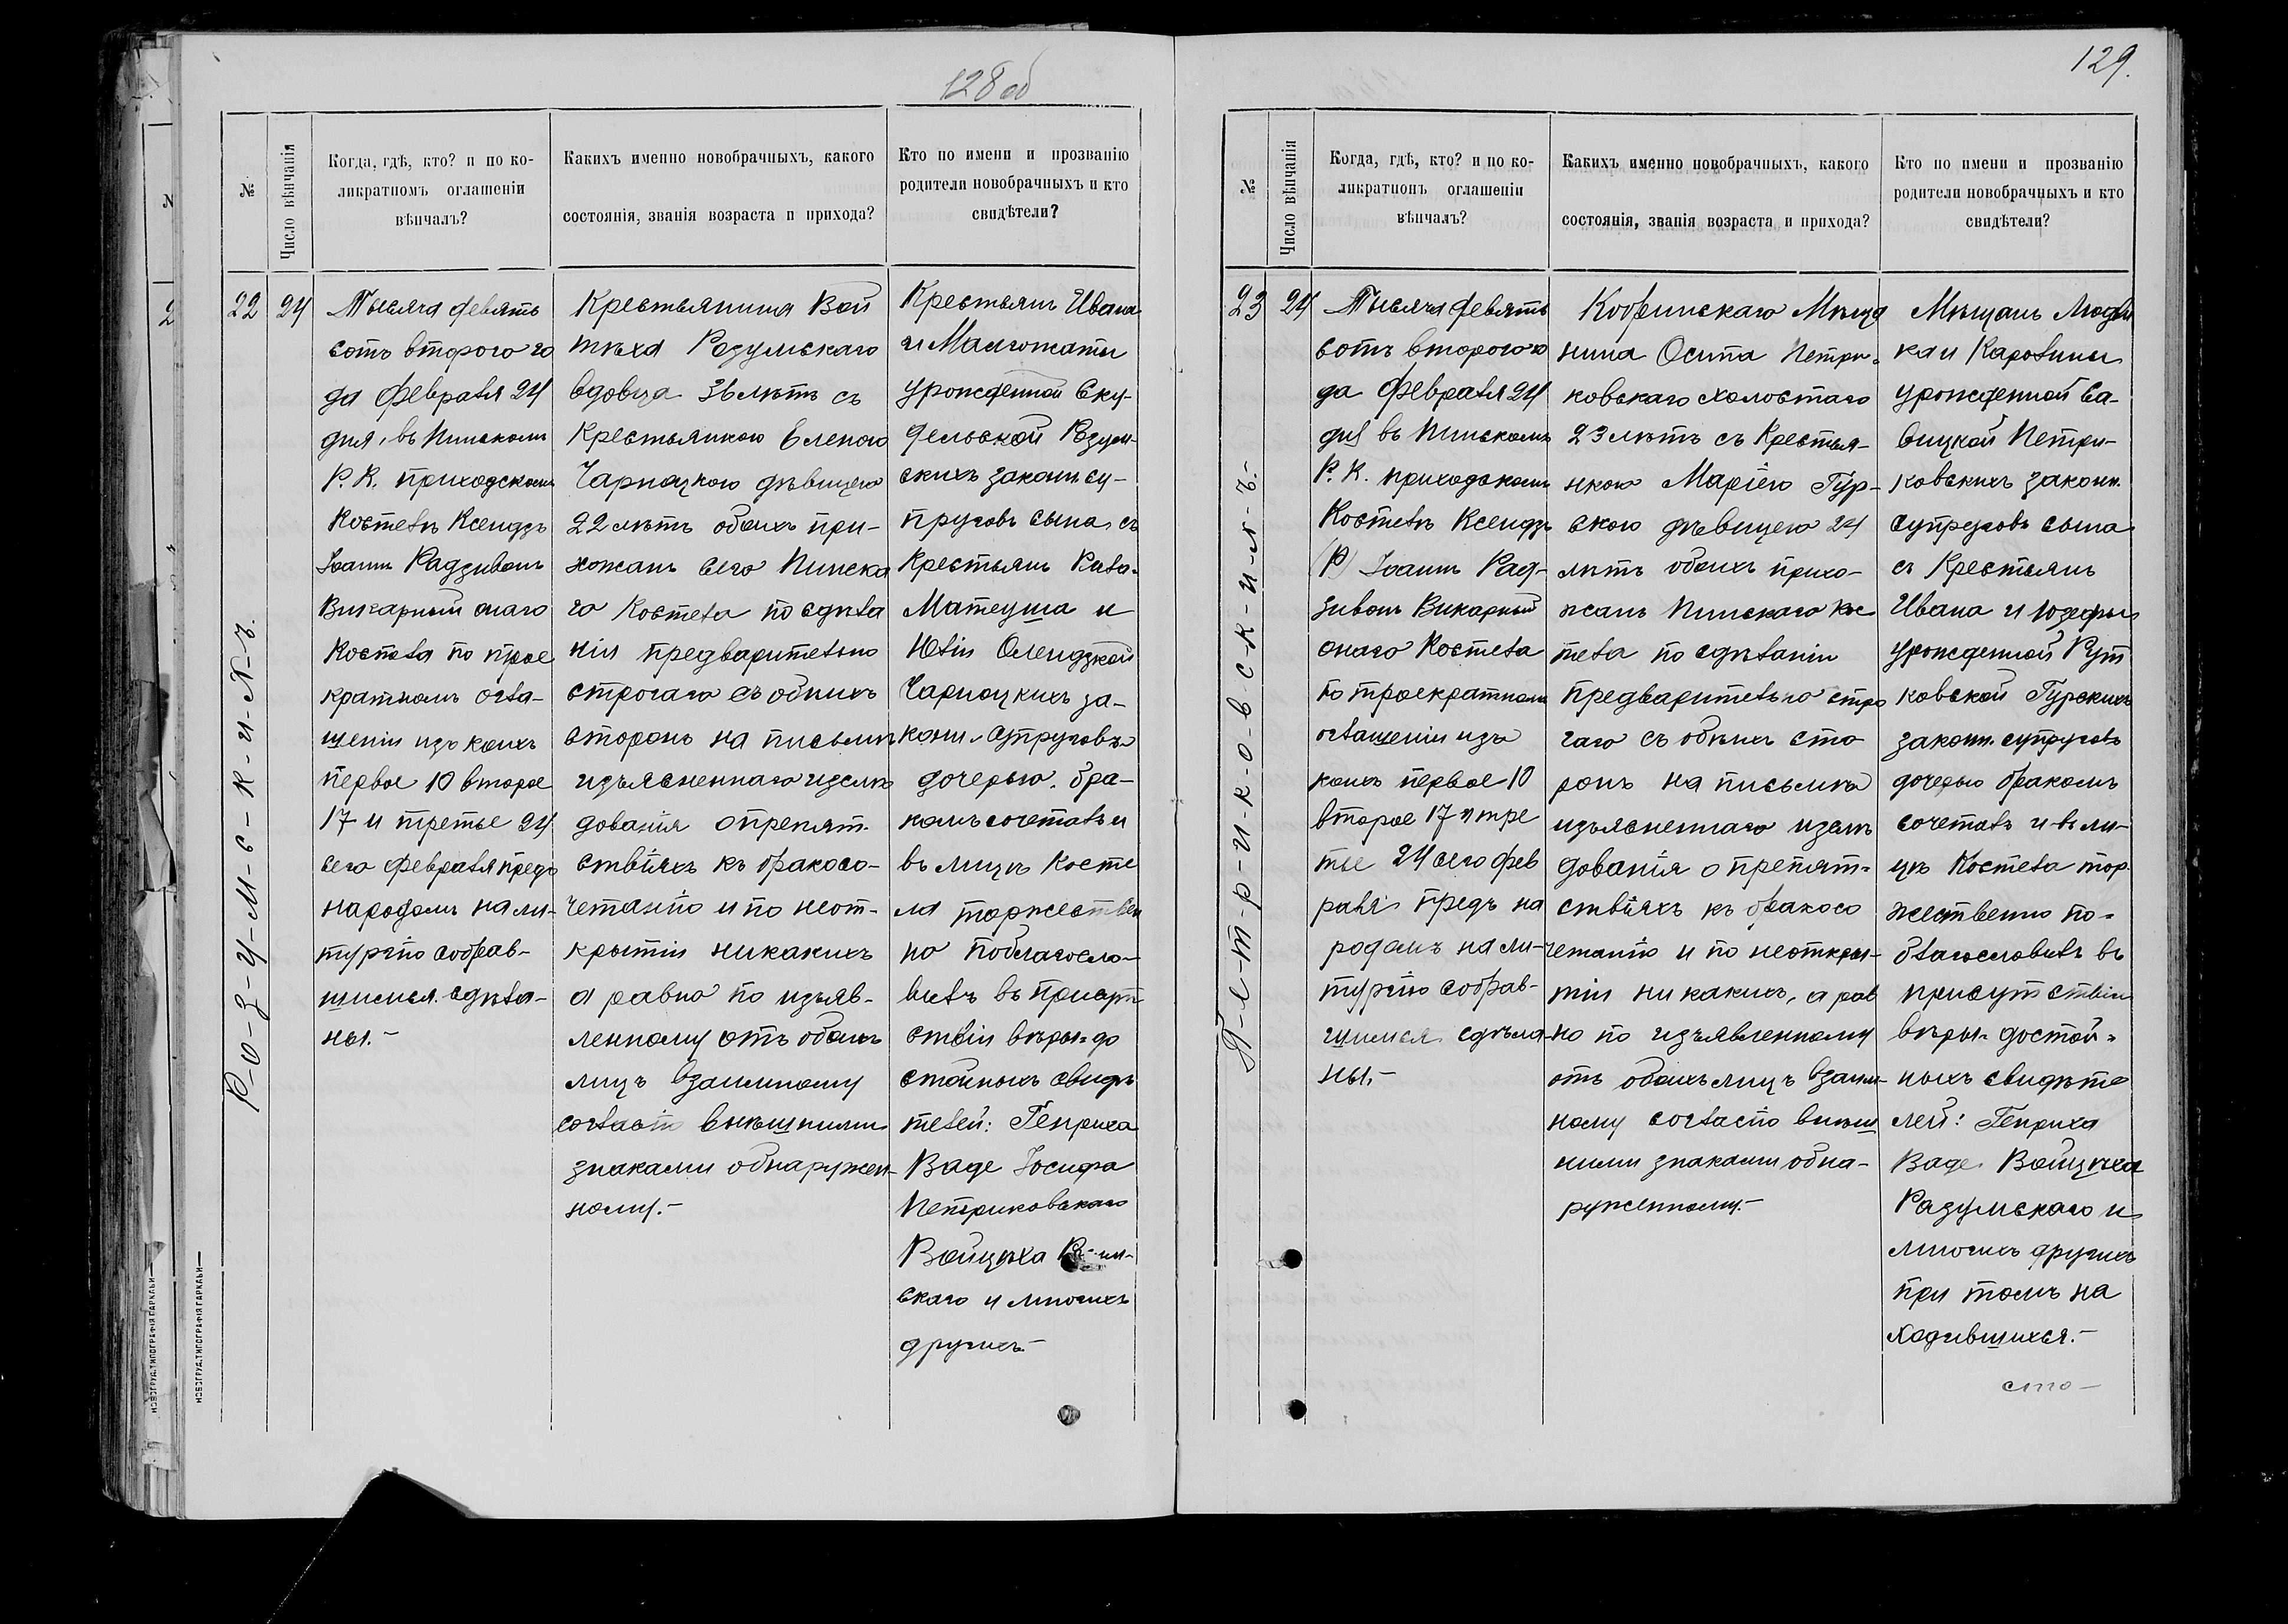 128 об
№
Число вѣнчанія
Когда, гдѣ, кто? и по ко-
ликратномъ оглашеніи
вѣнчалъ?
Какихъ именно новобрачныхъ, какого
состоянія, званія возраста и прихода?
Кто по имени и прозванію
родители новобрачныхъ и кто
свидѣтели?
22
24
Р-о-з-у-м-с-к-и-й-ъ.
Тысяча девять
сотъ второго го
да февраля 24
дня, въ Пинскомъ
Р. К. приходскомъ
Костелѣ Ксендзъ
Іоаннъ Радзивонъ
Викарный онаго
Костела по трое
кратномъ огла-
шеніи изъ коихъ
первое 10 второе
17 и третье 24
сего февраля предъ
народомъ на ли-
тургію собрав-
шимся сдѣла-
ны.-
Крестьянина Вой
тѣха Розумскаго
вдовца 36 лѣтъ съ
Крестьянкою Еленою
Чарноцкою дѣвицею
22 лѣтъ обоихъ при-
хожанъ сего Пинска
го Костела по сдѣла
ніи предварительно
строгаго съ обѣихъ
сторонъ на письмѣ
изъясненнаго изслѣ
дованія о препят-
ствіяхъ къ бракосо-
четанію и по неот-
крытіи никакихъ
а равно по изъяв-
ленному отъ обоихъ
лицъ взаимному
согласію внѣшними
знаками обнаружен-
ному.-
Крестьянъ Ивана
и Малгожаты
урожденной Ску-
дельской Розум-
скихъ законн. су-
пруговъ сына, съ
Крестьянъ
Матеуша и
Юліи Олендзкой
Чарноцкихъ за-
конн. супруговъ
дочерью. бра-
комъ сочеталъ и
въ лицѣ Косте
ла торжествен
но поблагосло-
вилъ въ присут
ствіи вѣры-до
стойныхъ свидѣ
телей: Генриха
Ваде Іосифа
Петриковскаго
Войцѣха
скаго и многихъ
другихъ-
НОВОГРУД. ТИПОГРАФІЯ ГАРКАВИ
НОВОГРУД. ТИПОГРАФІЯ ГАРКАВИ
129.
№
Число вѣнчанія
Когда, гдѣ, кто? и по ко-
ликратномъ оглашеніи
вѣнчалъ?
Какихъ именно новобрачныхъ, какого
состоянія, званія возраста и прихода?
Кто по имени и прозванію
родители новобрачныхъ и кто
свидѣтели?
23
24
П-е-т-р-и-к-о-в-с-к-и-й-ъ.-
Тысяча девять
сотъ второго го
да февраля 24
дня въ Пинскомъ
Р. К. приходскомъ
Костелѣ Ксендзъ
(Р) Іоаннъ Рад-
зивонъ Викарный
онаго Костела
по троекратномъ
оглашеніи изъ
коихъ первое 10
второе 17 и тре
тье 24 сего фев
раля предъ на
родомъ на ли-
тургію собрав-
шимся сдѣла-
ны.-
Кобринскаго Мѣща
нина Осипа Петри-
ковскаго холостаго
23 лѣтъ съ Крестья-
нкою Маріею Гур-
скою дѣвицею 24
лѣтъ обоихъ прихо-
жанъ Пинскаго Кос
тела по сдѣланіи
предварительно стро
гаго съ обѣихъ сто
ронъ на письмѣ
изъясненнаго изслѣ
дованія о препят-
ствіяхъ къ бракосо
четанію и по неоткры-
тіи никакихъ, а рав
но по изъявленному
отъ обоихъ лицъ взаим-
ному согласію внѣш
ними знаками обна-
руженному.-
Мѣщанъ Людви
ка и Каролины
урожденной Са-
вицкой Петри-
ковскихъ законн.
супруговъ сына
съ Крестьянъ
Ивана и Юзефы
урожденной Рут
ковской Гурскихъ
законн. супруговъ
дочерью бракомъ
сочеталъ и въ ли-
цѣ Костела тор-
жественно по-
благословилъ въ
присутствіи
вѣры-достой-
ныхъ свидѣте
лей: Генриха
Ваде Войцѣха
Разумскаго и
многихъ другихъ
при томъ на
ходившихся.-
сто-